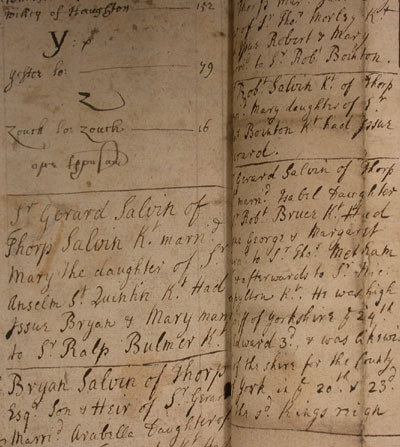 of Haughton — 152
Y:
Yester Lo: — 79
Z
Zouch Lo: Zouch — 16
Sr Gerard Salvin of
Thorp Salvin Kt. marrid
Mary the daughter of Sr
Anselm St Quintin Kt. Had
Issue Bryan & Mary marr
to Sr Ralp Bulmer Kt.
Bryan Salvin of Thorp
Esqr Son & Heir of Sr Gerard
Marrid Arabella Daughter of
Sr Thos Morley Kt
Robert & Mary
to Sr Robt Bointon.
Robt Salvin Kt. of Thorp
Mary daughter of Sr
Bointon Kt had Issue
Gerard Salvin of Thorp
marrid Isabil Daughter
Robt Bruer Kt Had
George & Margaret
to Sr Thos Metham
& afterwards to Sr
Kt. He was high
of Yorkshire ye 24th
Edward 3d, & was likewise
of the shire for the County
York in ye 20th & 23d
the sd Kings reign